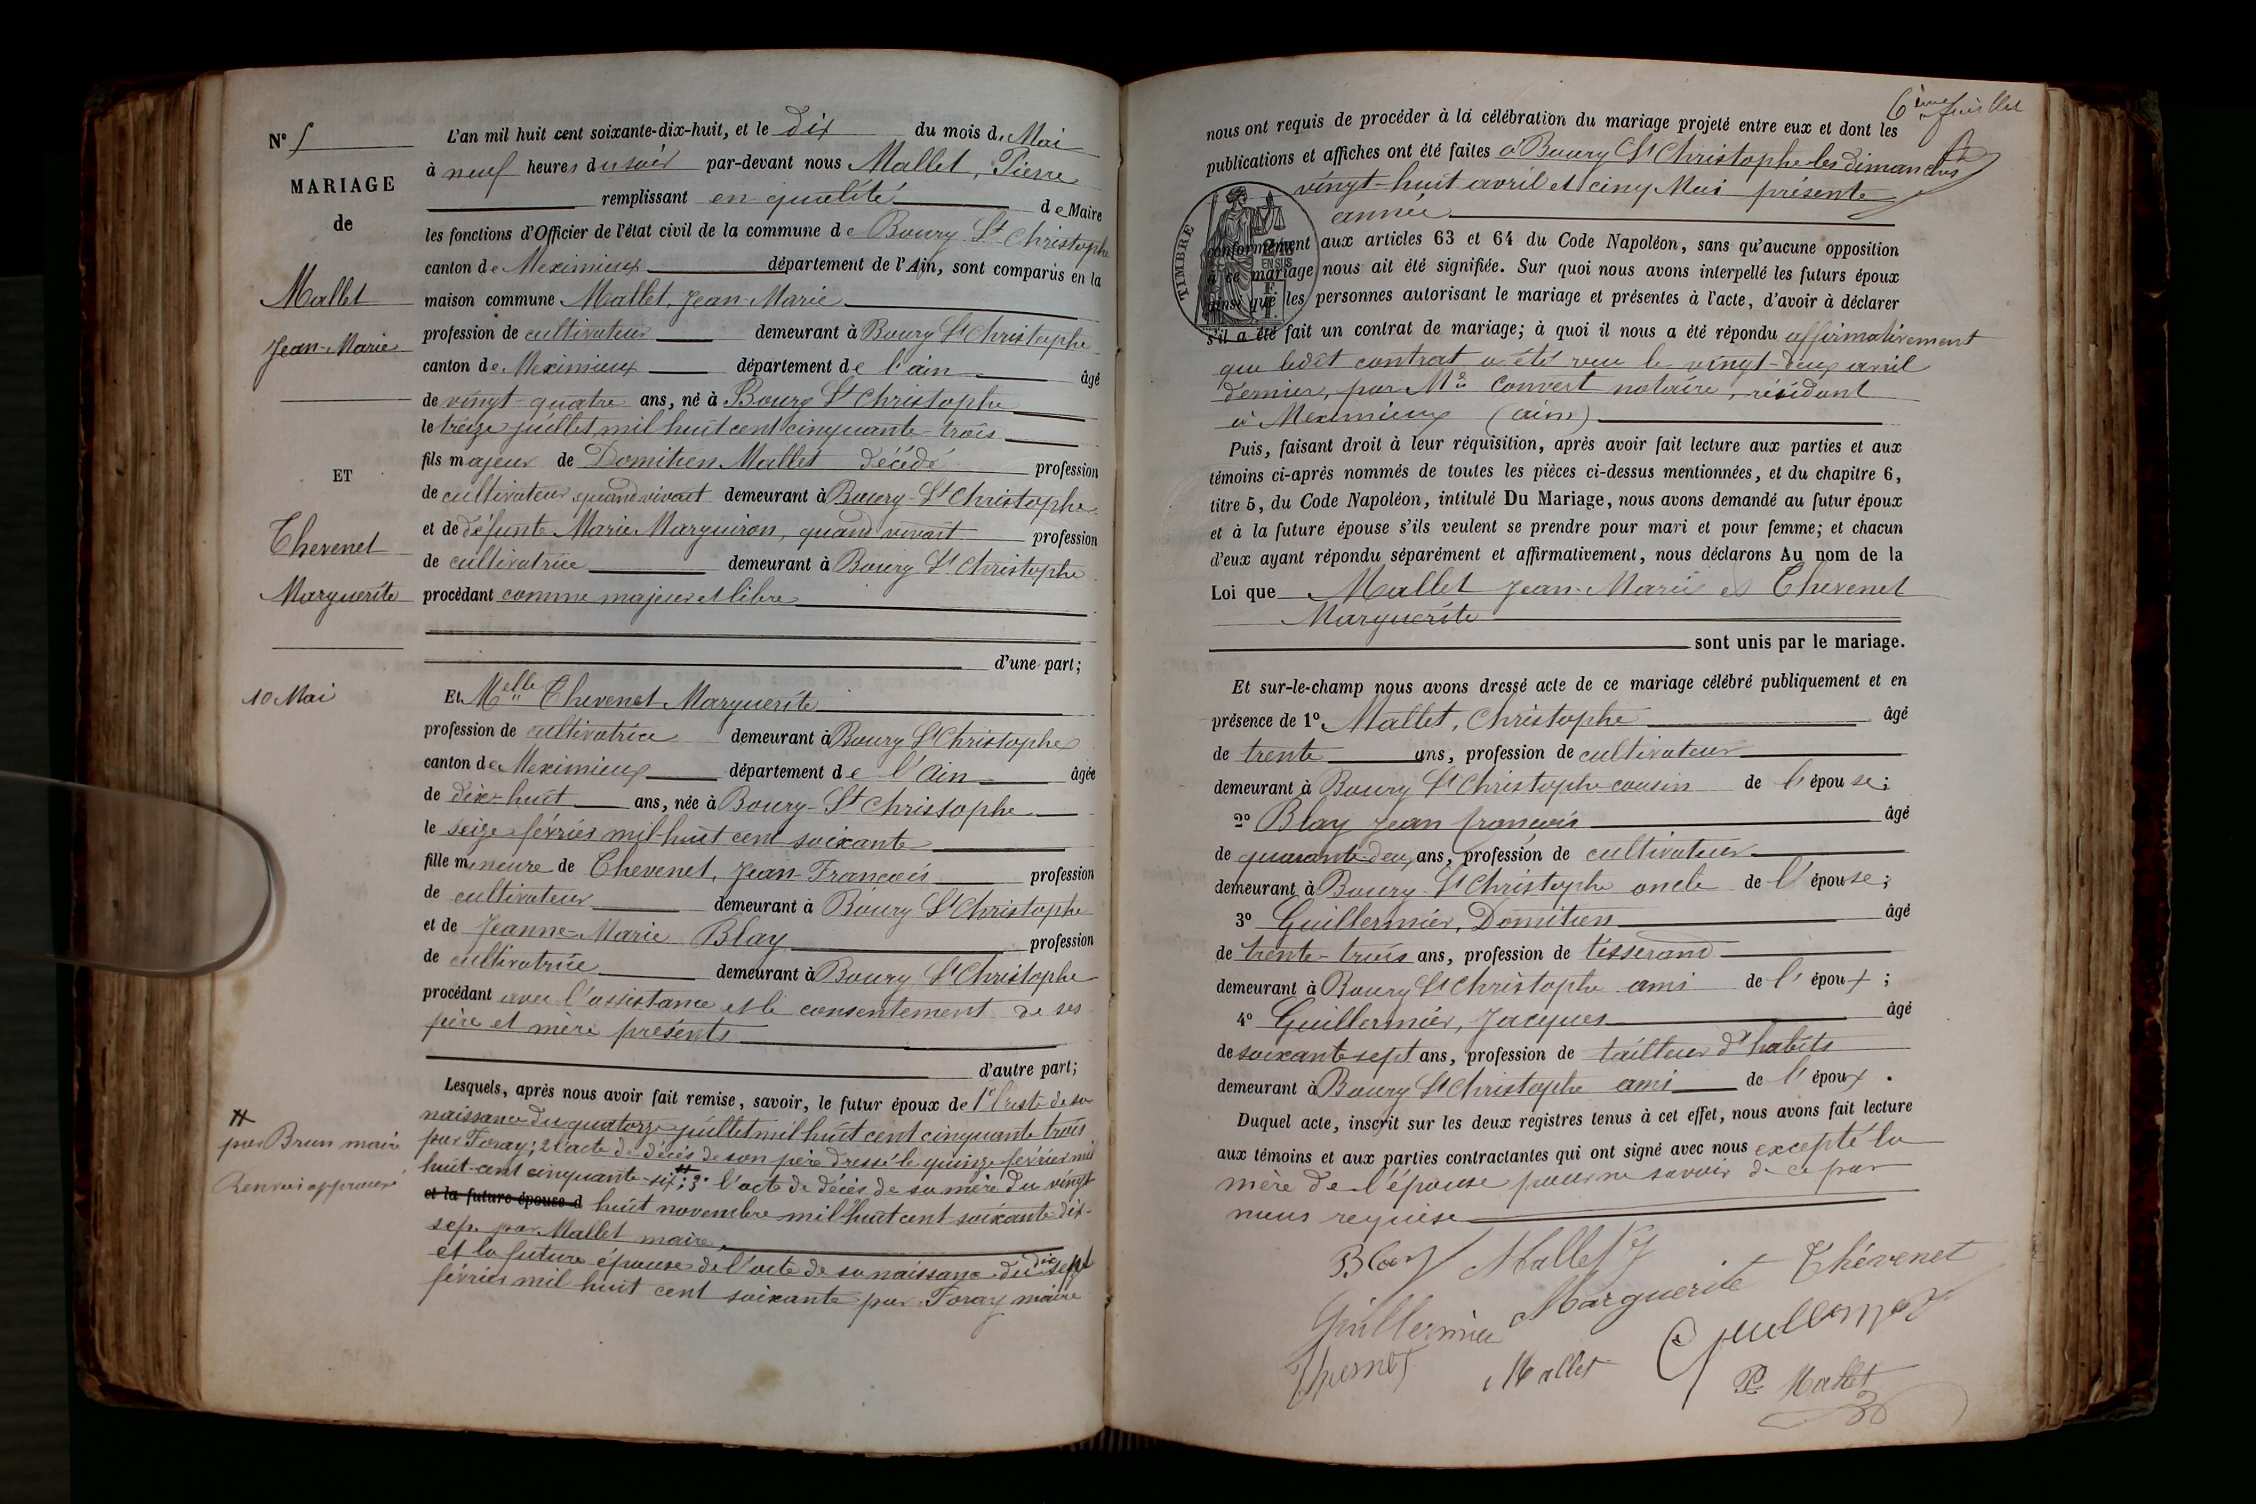 N° 5
MARIAGE
de
Mallet
Jean-Marie
ET
Thevenet
Marguerite
10 Mai
#
par Brun maire
Renvoi approuvé
L'an mil huit cent soixante-dix-huit, et le dix du mois de Mai
à neuf heures du soir par-devant nous Mallet, Pierre
remplissant en qualité de Maire
les fonctions d'Officier de l'état civil de la commune de Bourg St Christophe
canton de Meximieux département de l'Ain, sont comparus en la
maison commune Mallet, Jean-Marie
profession de cultivateur demeurant à Bourg St Christophe
canton de Meximieux département de l'ain âgé
de vingt-quatre ans, né à Bourg St Christophe
le treize juillet mil huit cent cinquante-trois
fils majeur de Domitien Mallet décédé profession
de cultivateur quand vivait demeurant à Bourg-St Christophe
et de défunte Marie Marguiron, quand vivait profession
de cultivatrice demeurant à Bourg St Christophe
procédant comme majeur et libre
d'une part;
Et Melle Thevenet Marguerite
profession de cultivatrice demeurant à Bourg St Christophe
canton de Meximieux département de l'Ain âgée
de dix-huit ans, née à Bourg-St Christophe
le seize février mil-huit cent soixante
fille mineure de Thevenet, Jean-Francois profession
de cultivateur demeurant à Bourg St Christophe
et de Jeanne-Marie Blay profession
de cultivatrice demeurant à Bourg St Christophe
procédant avec l'assistance et le consentement de ses
père et mère présents
d'autre part;
Lesquels, après nous avoir fait remise, savoir, le futur époux de 1° l'acte de sa
naissance du quatorze juillet mil huit cent cinquante trois
par Foray; 2 l'acte de décès de son père dressé le quinze février mil
huit-cent cinquante-six #; 3° l'acte de décès de sa mère du vingt
et la future épouse d huit novembre mil huit cent soixante-dix-
sep. par Mallet maire
et la future épouse de l'acte de sa naissance du dix sept
février mil huit cent soixante par Foray maire
6ème feuillet
nous ont requis de procéder à la célébration du mariage projeté entre eux et dont les
publications et affiches ont été faites à Bourg St Christophe les dimanches
vingt-huit avril et cinq Mai présente
année
TIMBRE
conformément aux articles 63 et 64 du Code Napoléon, sans qu'aucune opposition
à ce mariage nous ait été signifiée. Sur quoi nous avons interpellé les futurs époux
EN SUS
ainsi que les personnes autorisant le mariage et présentes à l'acte, d'avoir à déclarer
s'il a été fait un contrat de mariage; à quoi il nous a été répondu affirmativement
que ledit contrat a été reçu le vingt-deux avril
dernier, par Me Convert notaire, résidant
à Meximieux (ain)
Puis, faisant droit à leur réquisition, après avoir fait lecture aux parties et aux
témoins ci-après nommés de toutes les pièces ci-dessus mentionnées, et du chapitre 6,
titre 5, du Code Napoléon, intitulé Du Mariage, nous avons demandé au futur époux
et à la future épouse s'ils veulent se prendre pour mari et pour femme; et chacun
d'eux ayant répondu séparément et affirmativement, nous déclarons Au nom de la
Loi que Mallet Jean-Marie et Thevenet
Marguerite
sont unis par le mariage.
Et sur-le-champ nous avons dressé acte de ce mariage célébré publiquement et en
présence de 1° Mallet, Christophe âgé
de trente ans, profession de cultivateur
demeurant à Bourg St Christophe cousin de l'épouse;
2° Blay Jean francois âgé
de quarante-deux ans, profession de cultivateur
demeurant à Bourg-St Christophe oncle de l'épouse;
3° Guillermier, Domitien âgé
de trente-trois ans, profession de tisserand
demeurant à Bourg St Christophe ami de l'époux;
4° Guillermier, Jacques âgé
de soixante-sept ans, profession de tailleur d'habits
demeurant à Bourg St Christophe ami de l'époux.
Duquel acte, inscrit sur les deux registres tenus à cet effet, nous avons fait lecture
aux témoins et aux parties contractantes qui ont signé avec nous excepté la
mère de l'épouse pour ne savoir de ce par
nous requise
Blay Mallet
Marguerite Thévenet
Guillermier
Mallet
P. Mallet